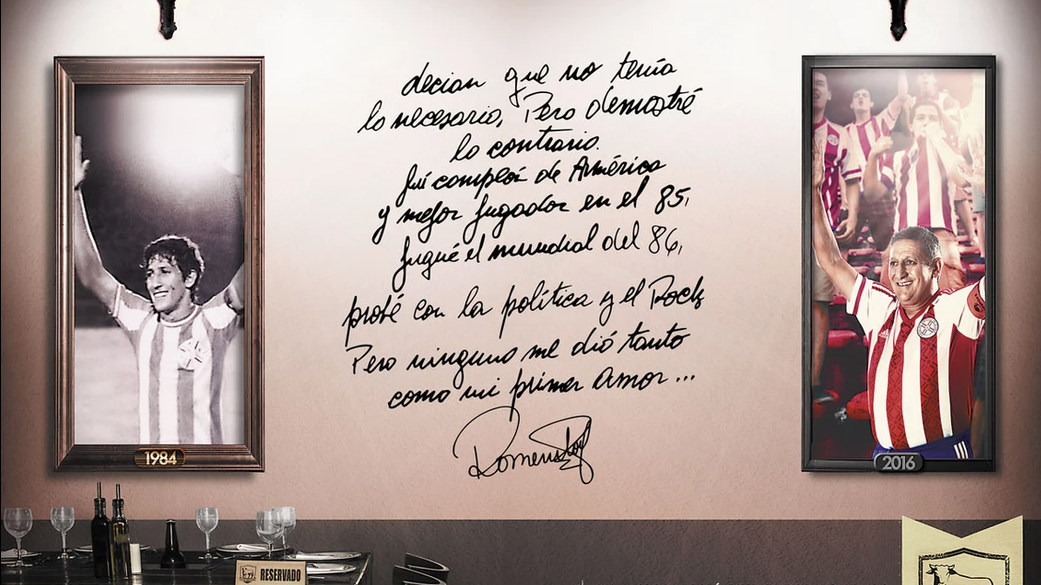 decian que no tenía
lo necesario, Pero demostré
lo contrario.
fuí campeón de América
y mejor jugador en el 85,
jugué el mundial del 86,
probé con la política y el Rock
Pero ninguno me dió tanto
como mi primer amor...
Romerito
1984
2016
RESERVADO